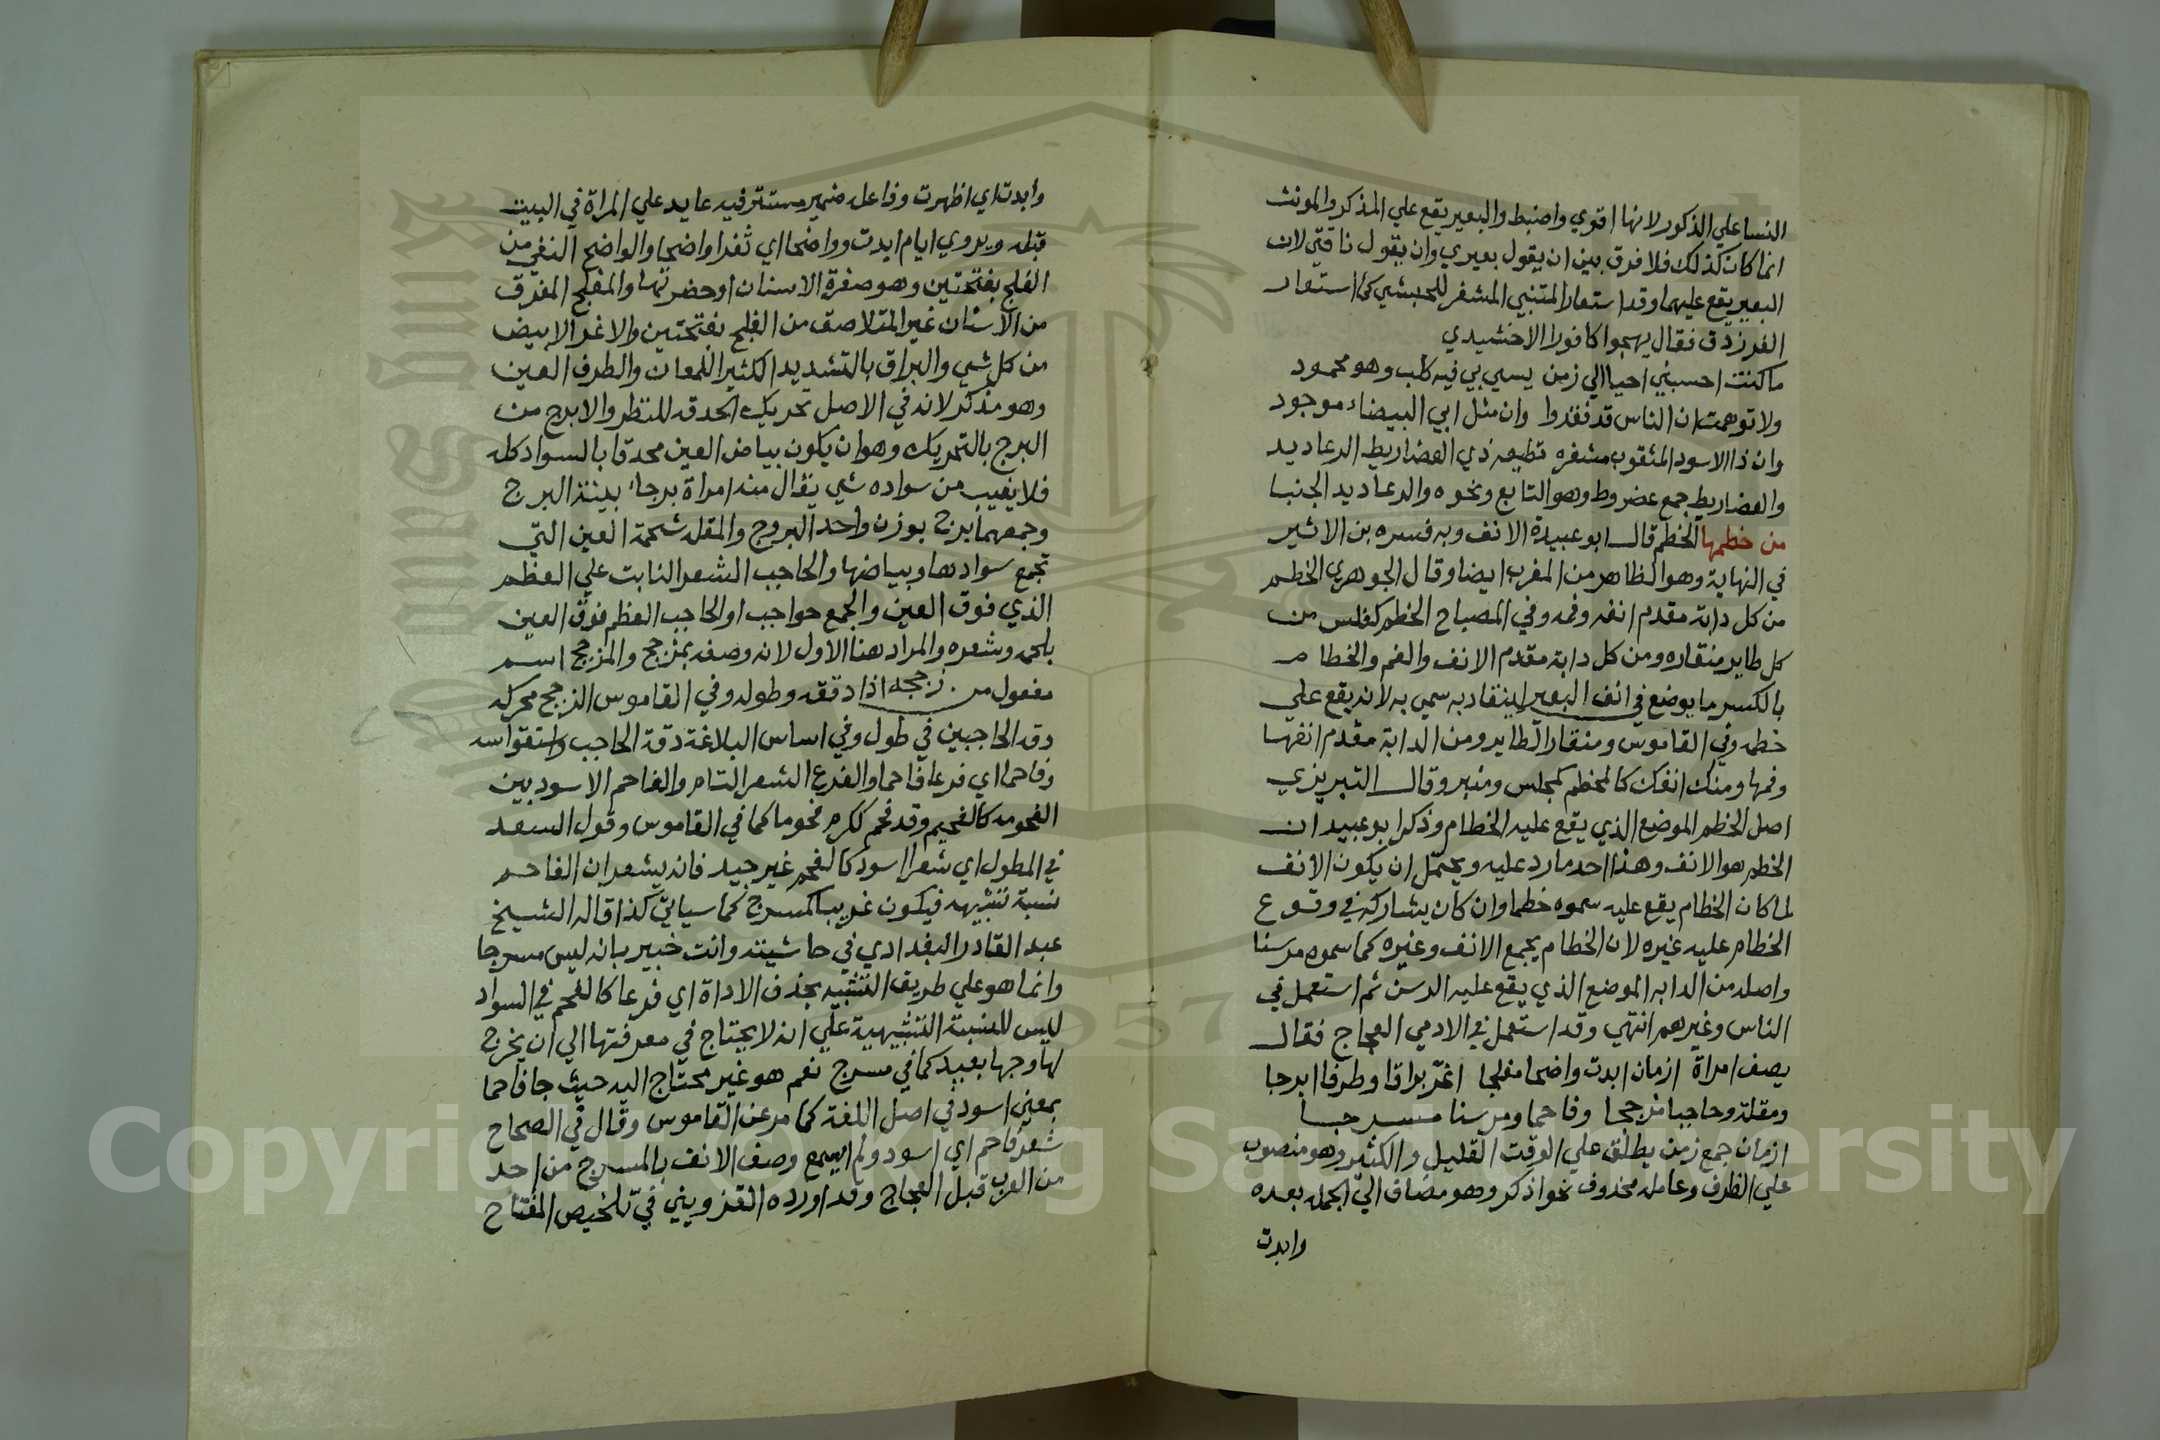 النسا علي الذكور لانها اقوي واضبط والبعير يقع علي المذكر والمونث
انما كان كذلك فلا فرق بين ان يقول بعيري وان يقول ناقتي لان
البعير يقع عليهما وقد استعار المتنبي المشفر للحبشي كما استعار
الفرزدق فقال يهجوا كافورا الاخشيدي
ما كنت احسبني احيا الي زمن يسيي بي فيه كلب وهو محمود
ولا توهمت ان الناس قد فقدوا وان مثل ابي البيضاء موجود
وان ذا الاسود المثقوب مشفره تطيعه ذي العضاريط الرعاديد
والعضاريط جمع عضروط وهو التابع ونحوه والرعاديد الجبنا
من خطمها الخطم قال ابو عبيدة الانف وبه فسره بن الاثير
في النهاية وهو الظاهر من المغرب ايضا وقال الجوهري الخطم
من كل دابة مقدم انفه وفمه وفي المصباح الخطم كفلس من
كل طاير منقاره ومن كل دابة مقدم الانف والفم والخطام
بالكسر ما يوضع في انف البعير لينقاد به سمي به لانه يقع علي
خطمه وفي القاموس ومنقار الطاير ومن الدابة مقدم انفها
وفمها ومنك انفك كالمخطم كمجلس ومنبر وقال التبريزي
اصل الخطم الموضع الذي يقع عليه الخطام وذكر ابو عبيد ان
الخطم هو الانف وهذا احد ما رد عليه ويحتمل ان يكون الانف
لما كان الخطام يقع عليه سموه خطما وان كان يشاركه في وقوع
الخطام عليه غيره لان الخطام يجمع الانف وغيره كما سموه مرسنا
واصله من الدابه الموضع الذي يقع عليه الرسن ثم استعمل في
الناس وغيرهم انتهي وقد استعمل في الادمي العجاج فقال
يصف امراة ازمان ابدت واضحا مفلجا اغر براقا وطرفا ابرجا
ومقلة وحاجبا مزججا وفاحما ومرسنا مسرجا
ازمان جمع زمن يطلق علي الوقت القليل والكثير وهو منصوب
علي الظرف وعامله محذوف نحو اذكر وهو مضاف الي الجمله بعده
وابدت
وابدت اي اظهرت وفاعله ضمير مستتر فيه عايد علي المراة في البيت
قبله ويروي ايام ابدت وواضحا اي ثغرا واضحا والواضح النقي من
القلح بفتحتين وهو صفرة الاسنان او خضرتها والمفلج المفرق
من الاسنان غير المتلاصق من الفلج بفتحتين والاغر الابيض
من كل شي والبراق بالتشديد الكثير اللمعان والطرف العين
وهو مذكر لانه في الاصل تحريك الحدقه للنظر والابرج من
البرج بالتحريك وهو ان يكون بياض العين محدقا بالسواد كله
فلا يغيب من سواده شي يقال منه امراة برجاء بينة البرج
وجمعهما برج بوزن واحد البروج والمقله شحمة العين التي
تجمع سوادها وبياضها والحاجب الشعر النابت علي العظم
الذي فوق العين والجمع حواجب او الحاجب العظم فوق العين
بلحمه وشعره والمراد هنا الاول لانه وصفه بمزجج والمزجج اسم
مفعول من زججه اذا دققه وطوله وفي القاموس الزجج محركه
دقه الحاجبين في طول وفي اساس البلاغة دقة الحاجب واستقواسه
وفاحما اي فرعا فاحما والفرع الشعر التام والفاحم الاسود بين
الفحومه كالفحيم وقد فحم ككرم فحوما كما في القاموس وقول السعد
في المطول اي شعرا اسود كالفحم غير جيد فانه يشعر ان الفاحم
نسبة تشبيه فيكون غريبا كمسرج كما سياتي كذا قاله الشيخ
عبد القادر البغدادي في حاشيته وانت خبير بانه ليس مسرجا
وانما هو علي طريق التشبيه بحذف الاداة اي فرعا كالفحم في السواد
ليس للنسبة التشبيهية علي انه لا يحتاج في معرفتها الي ان يخرج
لها وجها بعيد كما في مسرج نعم هو غير محتاج اليه حيث جا فاحما
بمعني اسود في اصل اللغة كما مر عن القاموس وقال في الصحاح
شعر فاحم اي اسود ولم يسمع وصف الانف بالمسرج من احد
من العرب قبل العجاج وقد اورده القزويني في تلخيص المفتاح
Copyright © King Saud University
1957